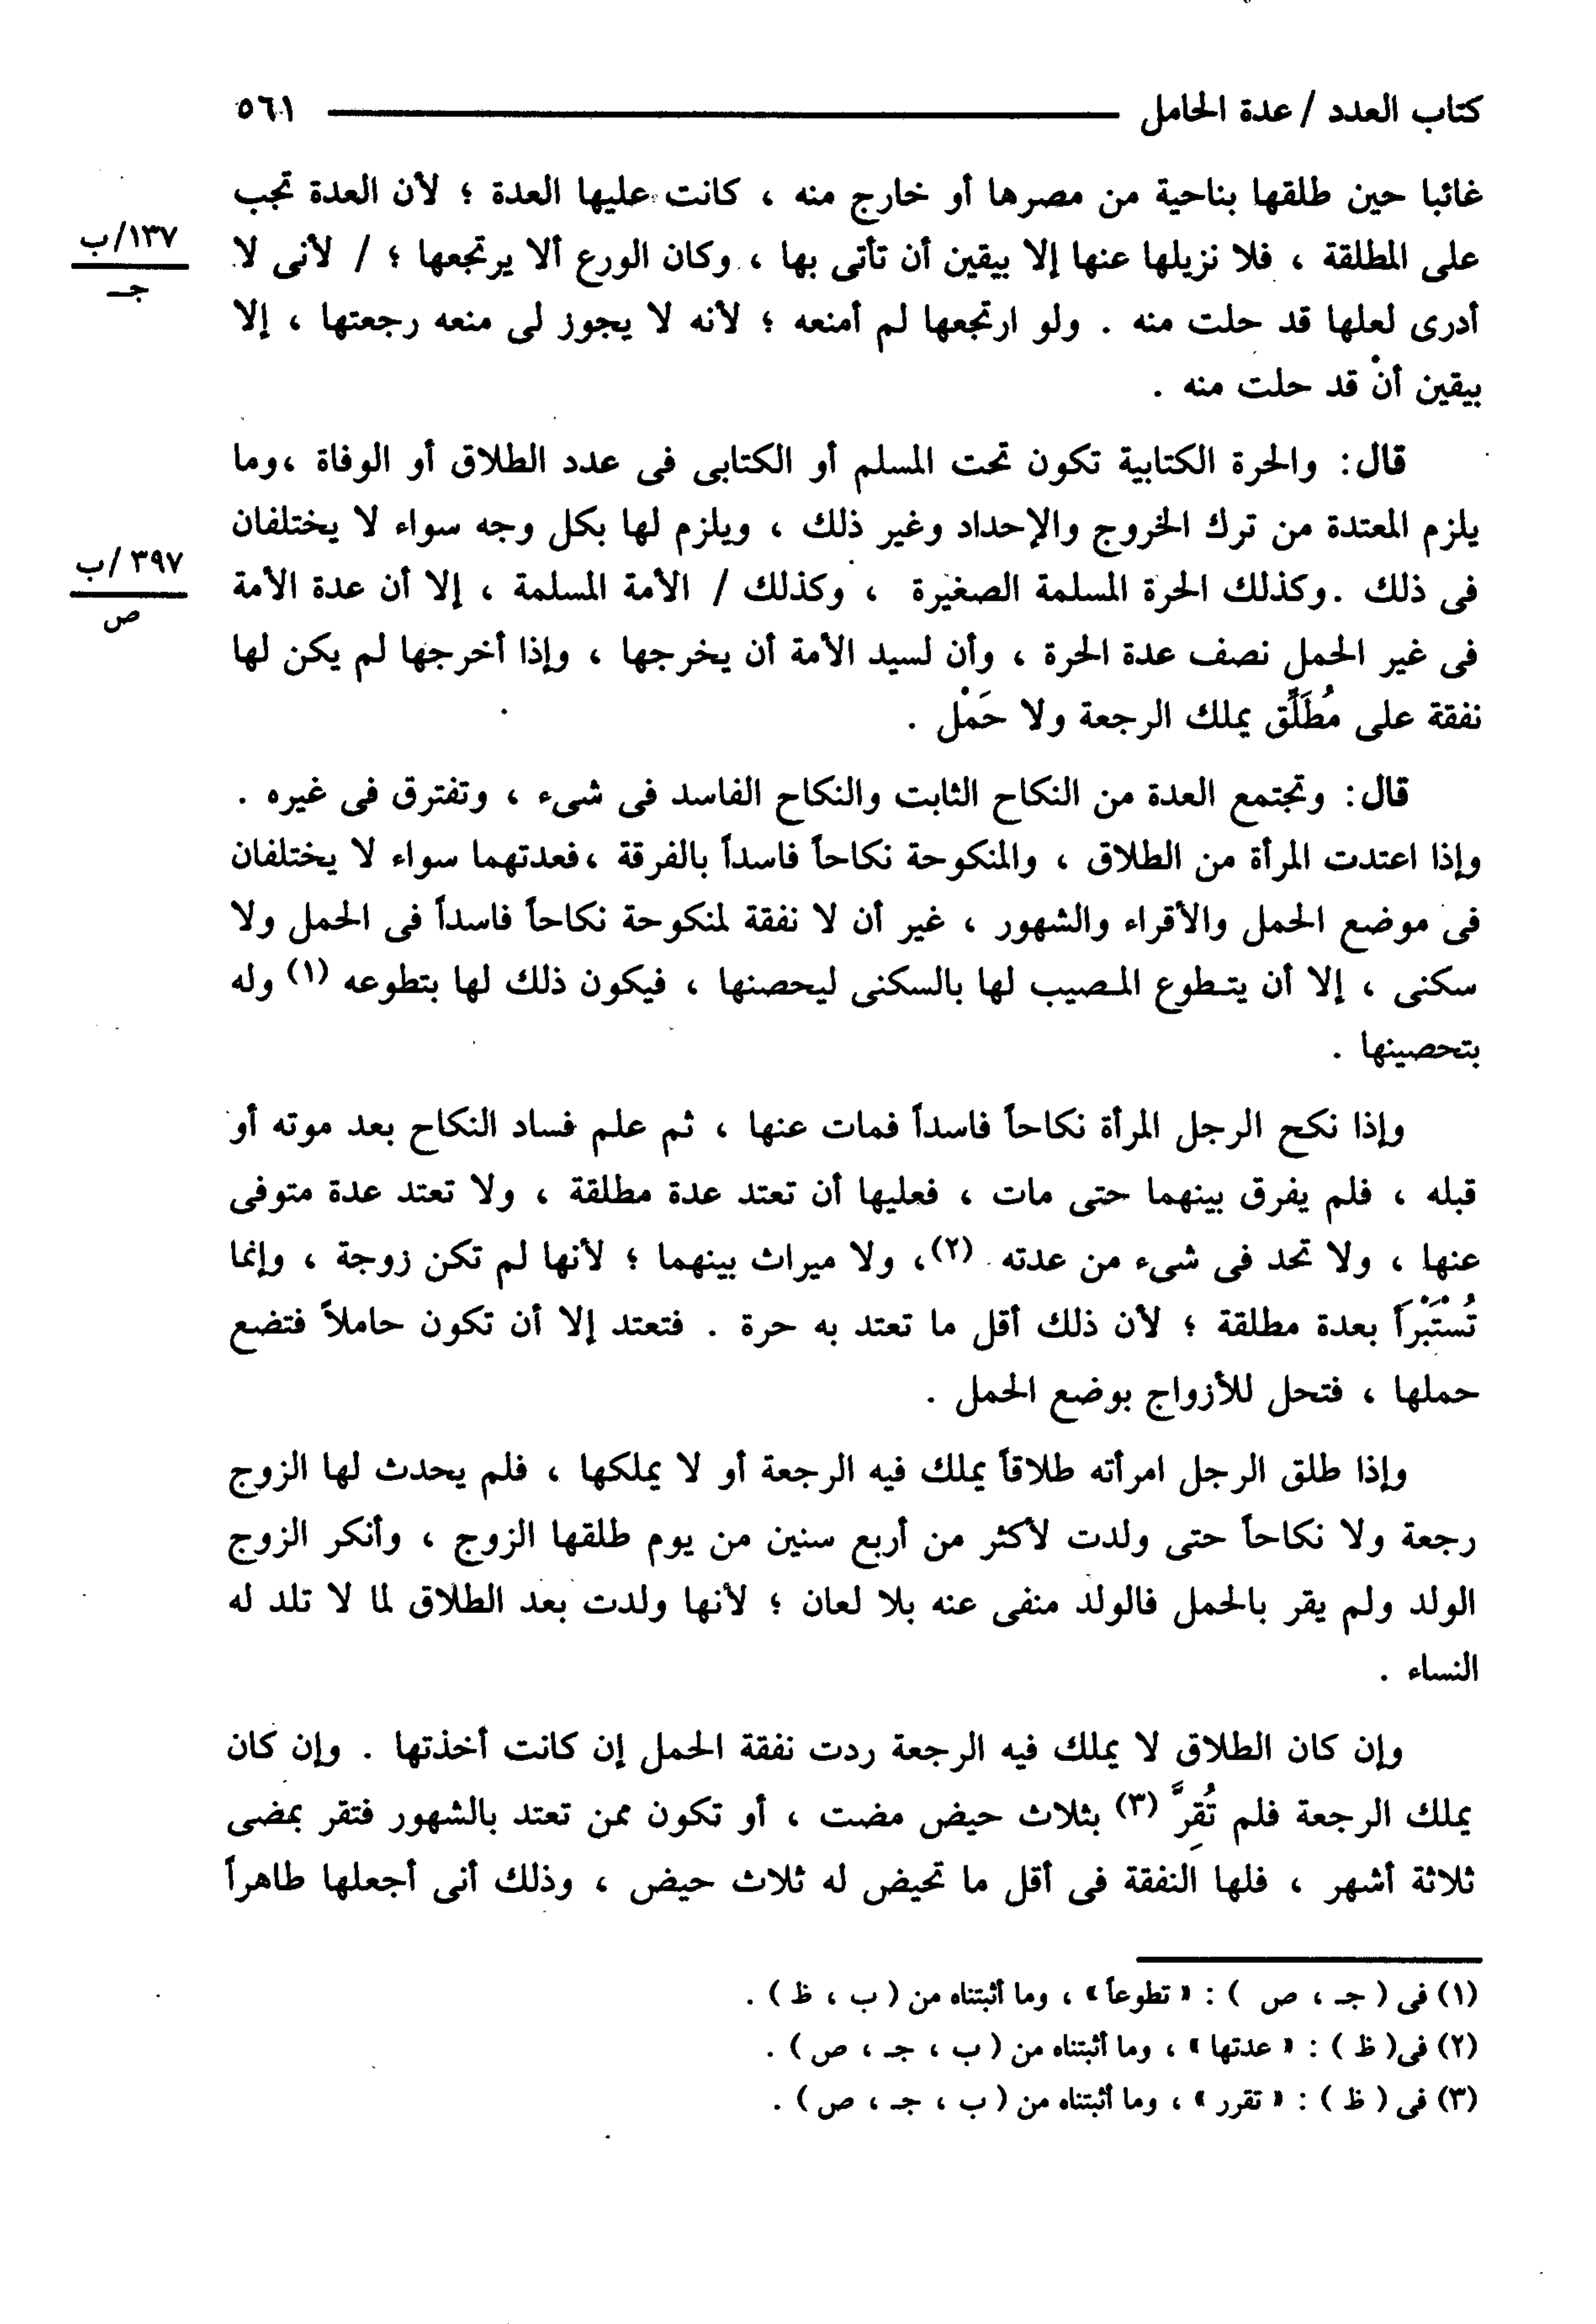 كتاب العدد / عدة الحامل ٥٦١
غائبا حين طلقها بناحية من مصرها أو خارج منه ، كانت عليها العدة ؛ لأن العدة تجب
على المطلقة ، فلا نزيلها عنها إلا بيقين أن تأتى بها ، وكان الورع ألا يرتجعها ؛ / لأنى لا
١٣٧/ب
جـ
أدرى لعلها قد حلت منه . ولو ارتجعها لم أمنعه ؛ لأنه لا يجوز لى منعه رجعتها ، إلا
بيقين أنْ قد حلت منه .
قال : والحرة الكتابية تكون تحت المسلم أو الكتابى فى عدد الطلاق أو الوفاة ،وما
يلزم المعتدة من ترك الخروج والإحداد وغير ذلك ، ويلزم لها بكل وجه سواء لا يختلفان
فى ذلك .وكذلك الحرة المسلمة الصغيرة ، وكذلك / الأمة المسلمة ، إلا أن عدة الأمة
٣٩٧/ب
ص
فى غير الحمل نصف عدة الحرة ، وأن لسيد الأمة أن يخرجها ، وإذا أخرجها لم يكن لها
نفقة على مُطَلِّق يملك الرجعة ولا حَمْل .
قال : وتجتمع العدة من النكاح الثابت والنكاح الفاسد فى شىء ، وتفترق فى غيره .
وإذا اعتدت المرأة من الطلاق ، والمنكوحة نكاحاً فاسداً بالفرقة ،فعدتهما سواء لا يختلفان
فى موضع الحمل والأقراء والشهور ، غير أن لا نفقة لمنكوحة نكاحاً فاسداً فى الحمل ولا
سكنى ، إلا أن يتـطوع المـصيب لها بالسكنى ليحصنها ، فيكون ذلك لها بتطوعه (١) وله
بتحصينها .
وإذا نكح الرجل المرأة نكاحاً فاسداً فمات عنها ، ثم علم فساد النكاح بعد موته أو
قبله ، فلم يفرق بينهما حتى مات ، فعليها أن تعتد عدة مطلقة ، ولا تعتد عدة متوفى
عنها ، ولا تحد فى شىء من عدته (٢)، ولا ميراث بينهما ؛ لأنها لم تكن زوجة ، وإنما
تُسْتَبْرَأ بعدة مطلقة ؛ لأن ذلك أقل ما تعتد به حرة . فتعتد إلا أن تكون حاملاً فتضع
حملها ، فتحل للأزواج بوضع الحمل .
وإذا طلق الرجل امرأته طلاقاً يملك فيه الرجعة أو لا يملكها ، فلم يحدث لها الزوج
رجعة ولا نكاحاً حتى ولدت لأكثر من أربع سنين من يوم طلقها الزوج ، وأنكر الزوج
الولد ولم يقر بالحمل فالولد منفى عنه بلا لعان ؛ لأنها ولدت بعد الطلاق لما لا تلد له
النساء .
وإن كان الطلاق لا يملك فيه الرجعة ردت نفقة الحمل إن كانت أخذتها . وإن كان
يملك الرجعة فلم تُقِرَّ (٣) بثلاث حيض مضت ، أو تكون ممن تعتد بالشهور فتقر بمضى
ثلاثة أشهر ، فلها النفقة فى أقل ما تحيض له ثلاث حيض ، وذلك أنى أجعلها طاهراً
(١) فى ( جـ ، ص ) : « تطوعاً » ، وما أثبتناه من ( ب ، ظ ) .
(٢) فى( ظ ) : « عدتها » ، وما أثبتناه من ( ب ، جـ ، ص ) .
(٣) فى ( ظ ) : « تقرر » ، وما أثبتناه من ( ب ، جـ ، ص ) .